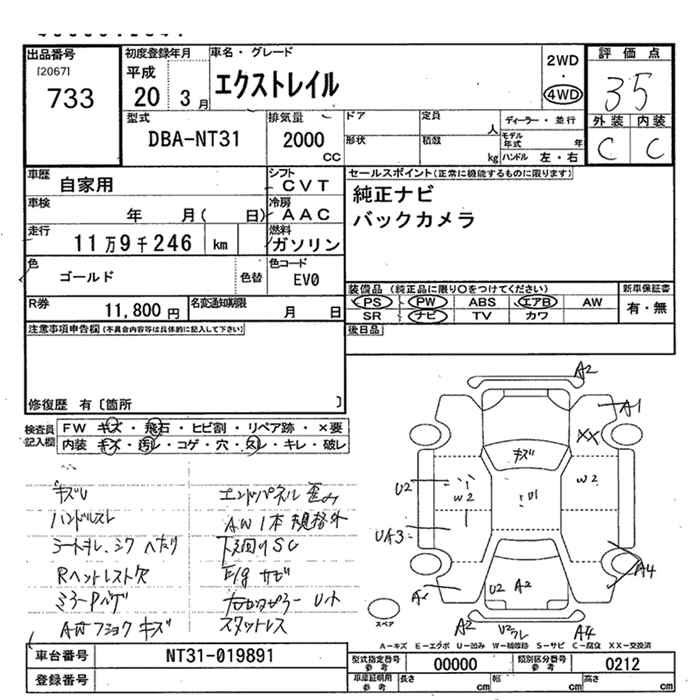 出品番号
[2067]
733
初度登録年月
平成
20 3月
車名・グレード
エクストレイル
2WD
・
4WD
評価点
35
外装 内装
C C
型式
DBA-NT31
排気量
2000
CC
ドア
定員
人
ディーラー・並行
形状
積載
kg
モデル年式 年
ハンドル 左・右
車歴
自家用
シフト
CVT
車検
年 月( 日)
冷房
AAC
走行
11万9千246 km
燃料
ガソリン
色
ゴールド
色替
色コード
EV0
R券
11,800円
名変通知期限
月 日
セールスポイント(正常に機能するものに限ります)
純正ナビ
バックカメラ
装備品 (純正品に限り○をつけてください)
PS PW ABS エアB AW
SR ナビ TV カワ
新車保証書
有・無
後日品
注意事項申告欄(不具合内容等は具体的に記入して下さい)
修復歴 有〔箇所 〕
検査員記入欄
FW キズ・飛石・ヒビ割・リペア跡・×要
内装 キズ・汚レ・コゲ・穴・スレ・キレ・破レ
キズU
ハンドルスレ
シートヨレ、シワ ヘタリ
Rヘッドレスト欠
AWフショク キズ
エンドパネル歪み
AW1本規格外
下廻りSC
E/gサビ
スタッドレス
A2
A1
XX
キズ
U2
W2
W2
U1
UA3
A4
U2
A2
A2
A4
スペア
A-キズ E-エクボ U-凹み W-補修跡 S-サビ C-腐食 XX-交換済
車台番号
NT31-019891
登録番号
型式指定番号 参考
00000
類別区分番号 参考
0212
車庫証明用 参考
長さ cm
幅 cm
高さ cm